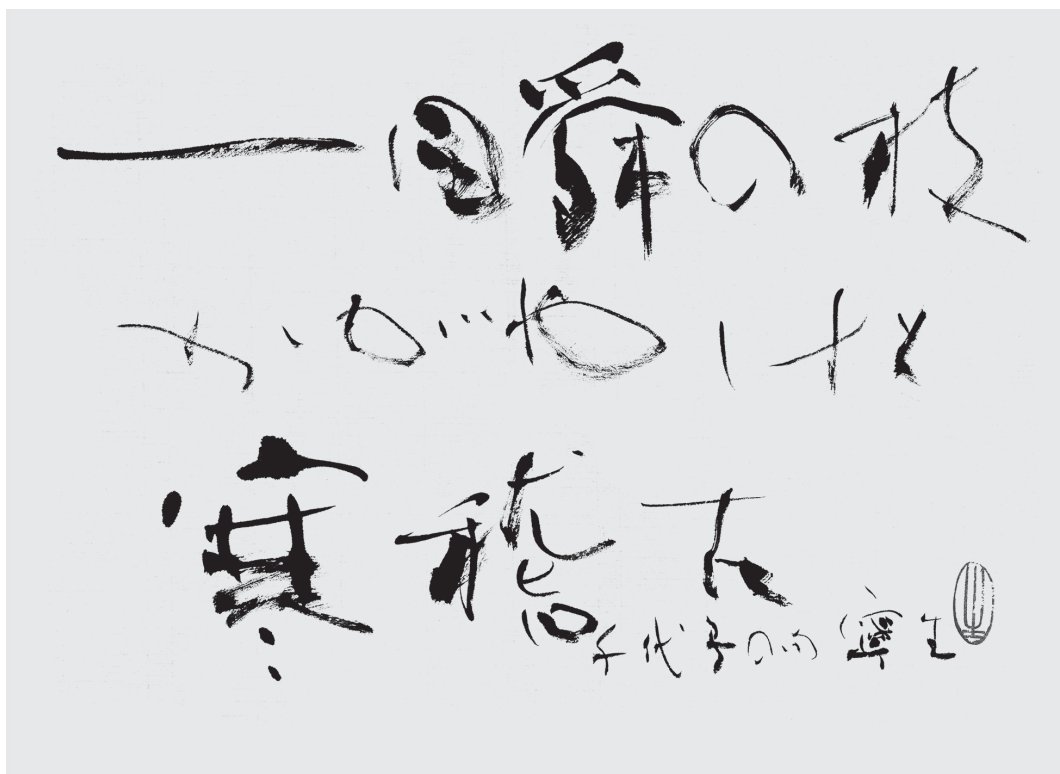 一瞬の技
かがやけと
寒稽古
千代子の句 寧生